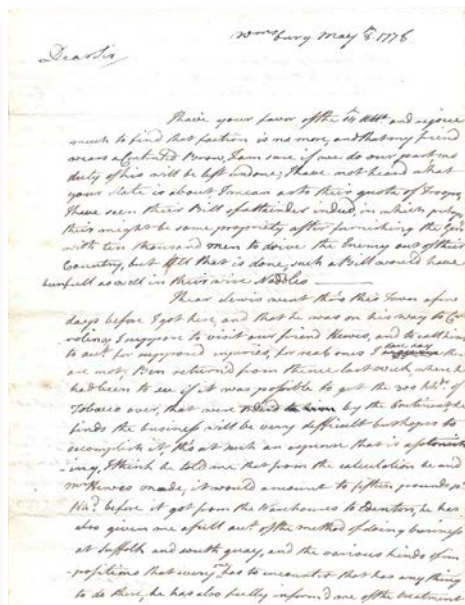 Wmsburg May 8th 1778
Dear Sir
I have your favor of the Ulto. and rejoice
much to find that faction is no more, and that my friend
wears a Contented Brow, I am sure if we do our part no
duty of his will be left undone; I have not heard what
your State is about I mean as to their quota of Troops,
I have seen their Bill of attainder indeed, in which perhaps
their might be some propriety after furnishing the Genl
with ten thousand men to drive the Enemy out of their
Country, but till that is done, such a Bill would have
been full as well in their wise Noddles
I hear Lewis went thro this Town a few
days before I got here, and that he was on his way to Ca
rolina, I suppose to visit our friend Hewes, and to call him
to acct. for supposed injuries, for real ones I dare say there
are not, Ben returned from thence last week, where he
had been to see if it was possible to get the 300 hhds. of
Tobacco over, that were by the Continent, he
finds the business will be very difficult but hopes to
accomplish it, tho at such an expense that is astonish
ing, I think he told me that from the calculation he and
Mr Hewes made, it would amount to fifteen pounds pr
hhd. before it got from the Warehouses to Edenton, he has
also given me a full acct. of the method of doing business
at Suffolk and South quay, and the various kinds of im
positions that every has to encounter that has any thing
to do there, he has also fully inform'd me of the treatment